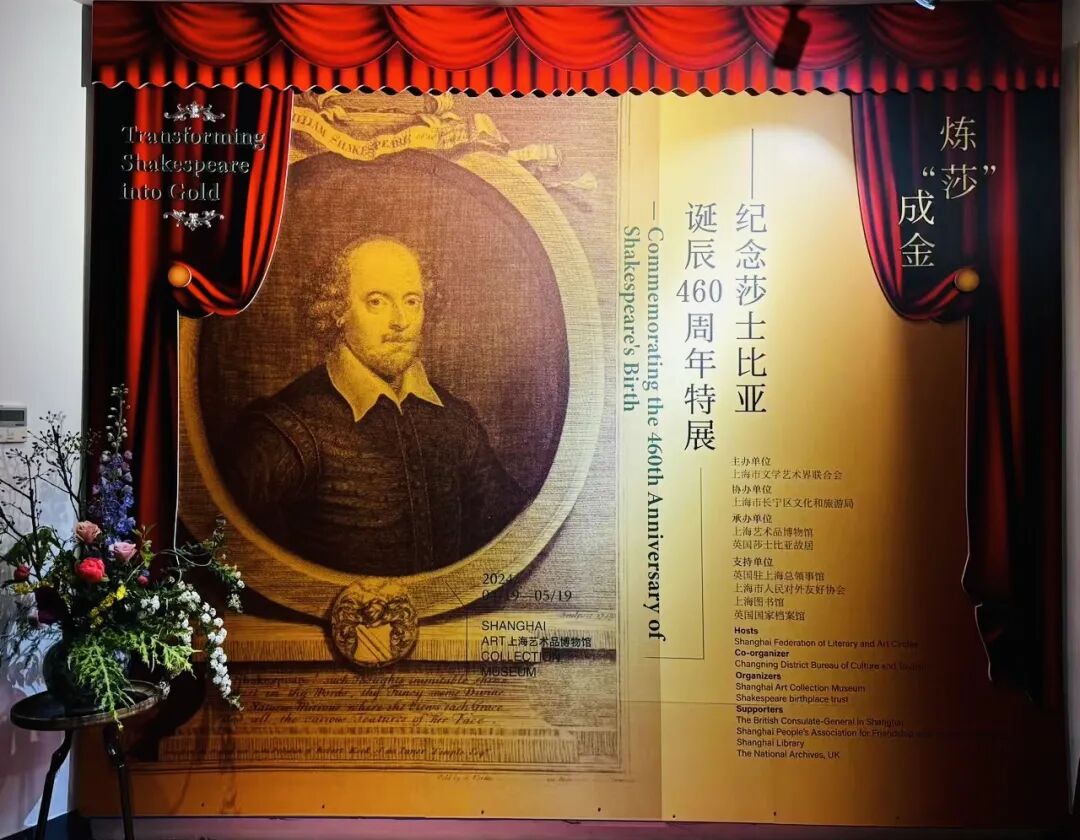 Transforming
Shakespeare
into Gold
炼
“莎”
成
金
WILLIAM SHAKESPEARE
——纪念莎士比亚
诞辰460周年特展
—Commemorating the 460th Anniversary of
Shakespeare's Birth
主办单位
上海市文学艺术界联合会
协办单位
上海市长宁区文化和旅游局
承办单位
上海艺术品博物馆
英国莎士比亚故居
支持单位
英国驻上海总领事馆
上海市人民对外友好协会
上海图书馆
英国国家档案馆
Hosts
Shanghai Federation of Literary and Art Circles
Co-organizer
Changning District Bureau of Culture and
Organizers
Shanghai Art Collection Museum
Shakespeare birthplace trust
Supporters
The British Consulate-General in Shanghai
Shanghai People's Association for Friendship
Shanghai Library
The National Archives, UK
2024
—05/19
SHANGHAI
ART 上海艺术品博物馆
COLLECTION
MUSEUM
such Thoughts inimitable
in thy Words, thy Fancy
Mirrour where she Views each Grace
and all the various Features of her Face.